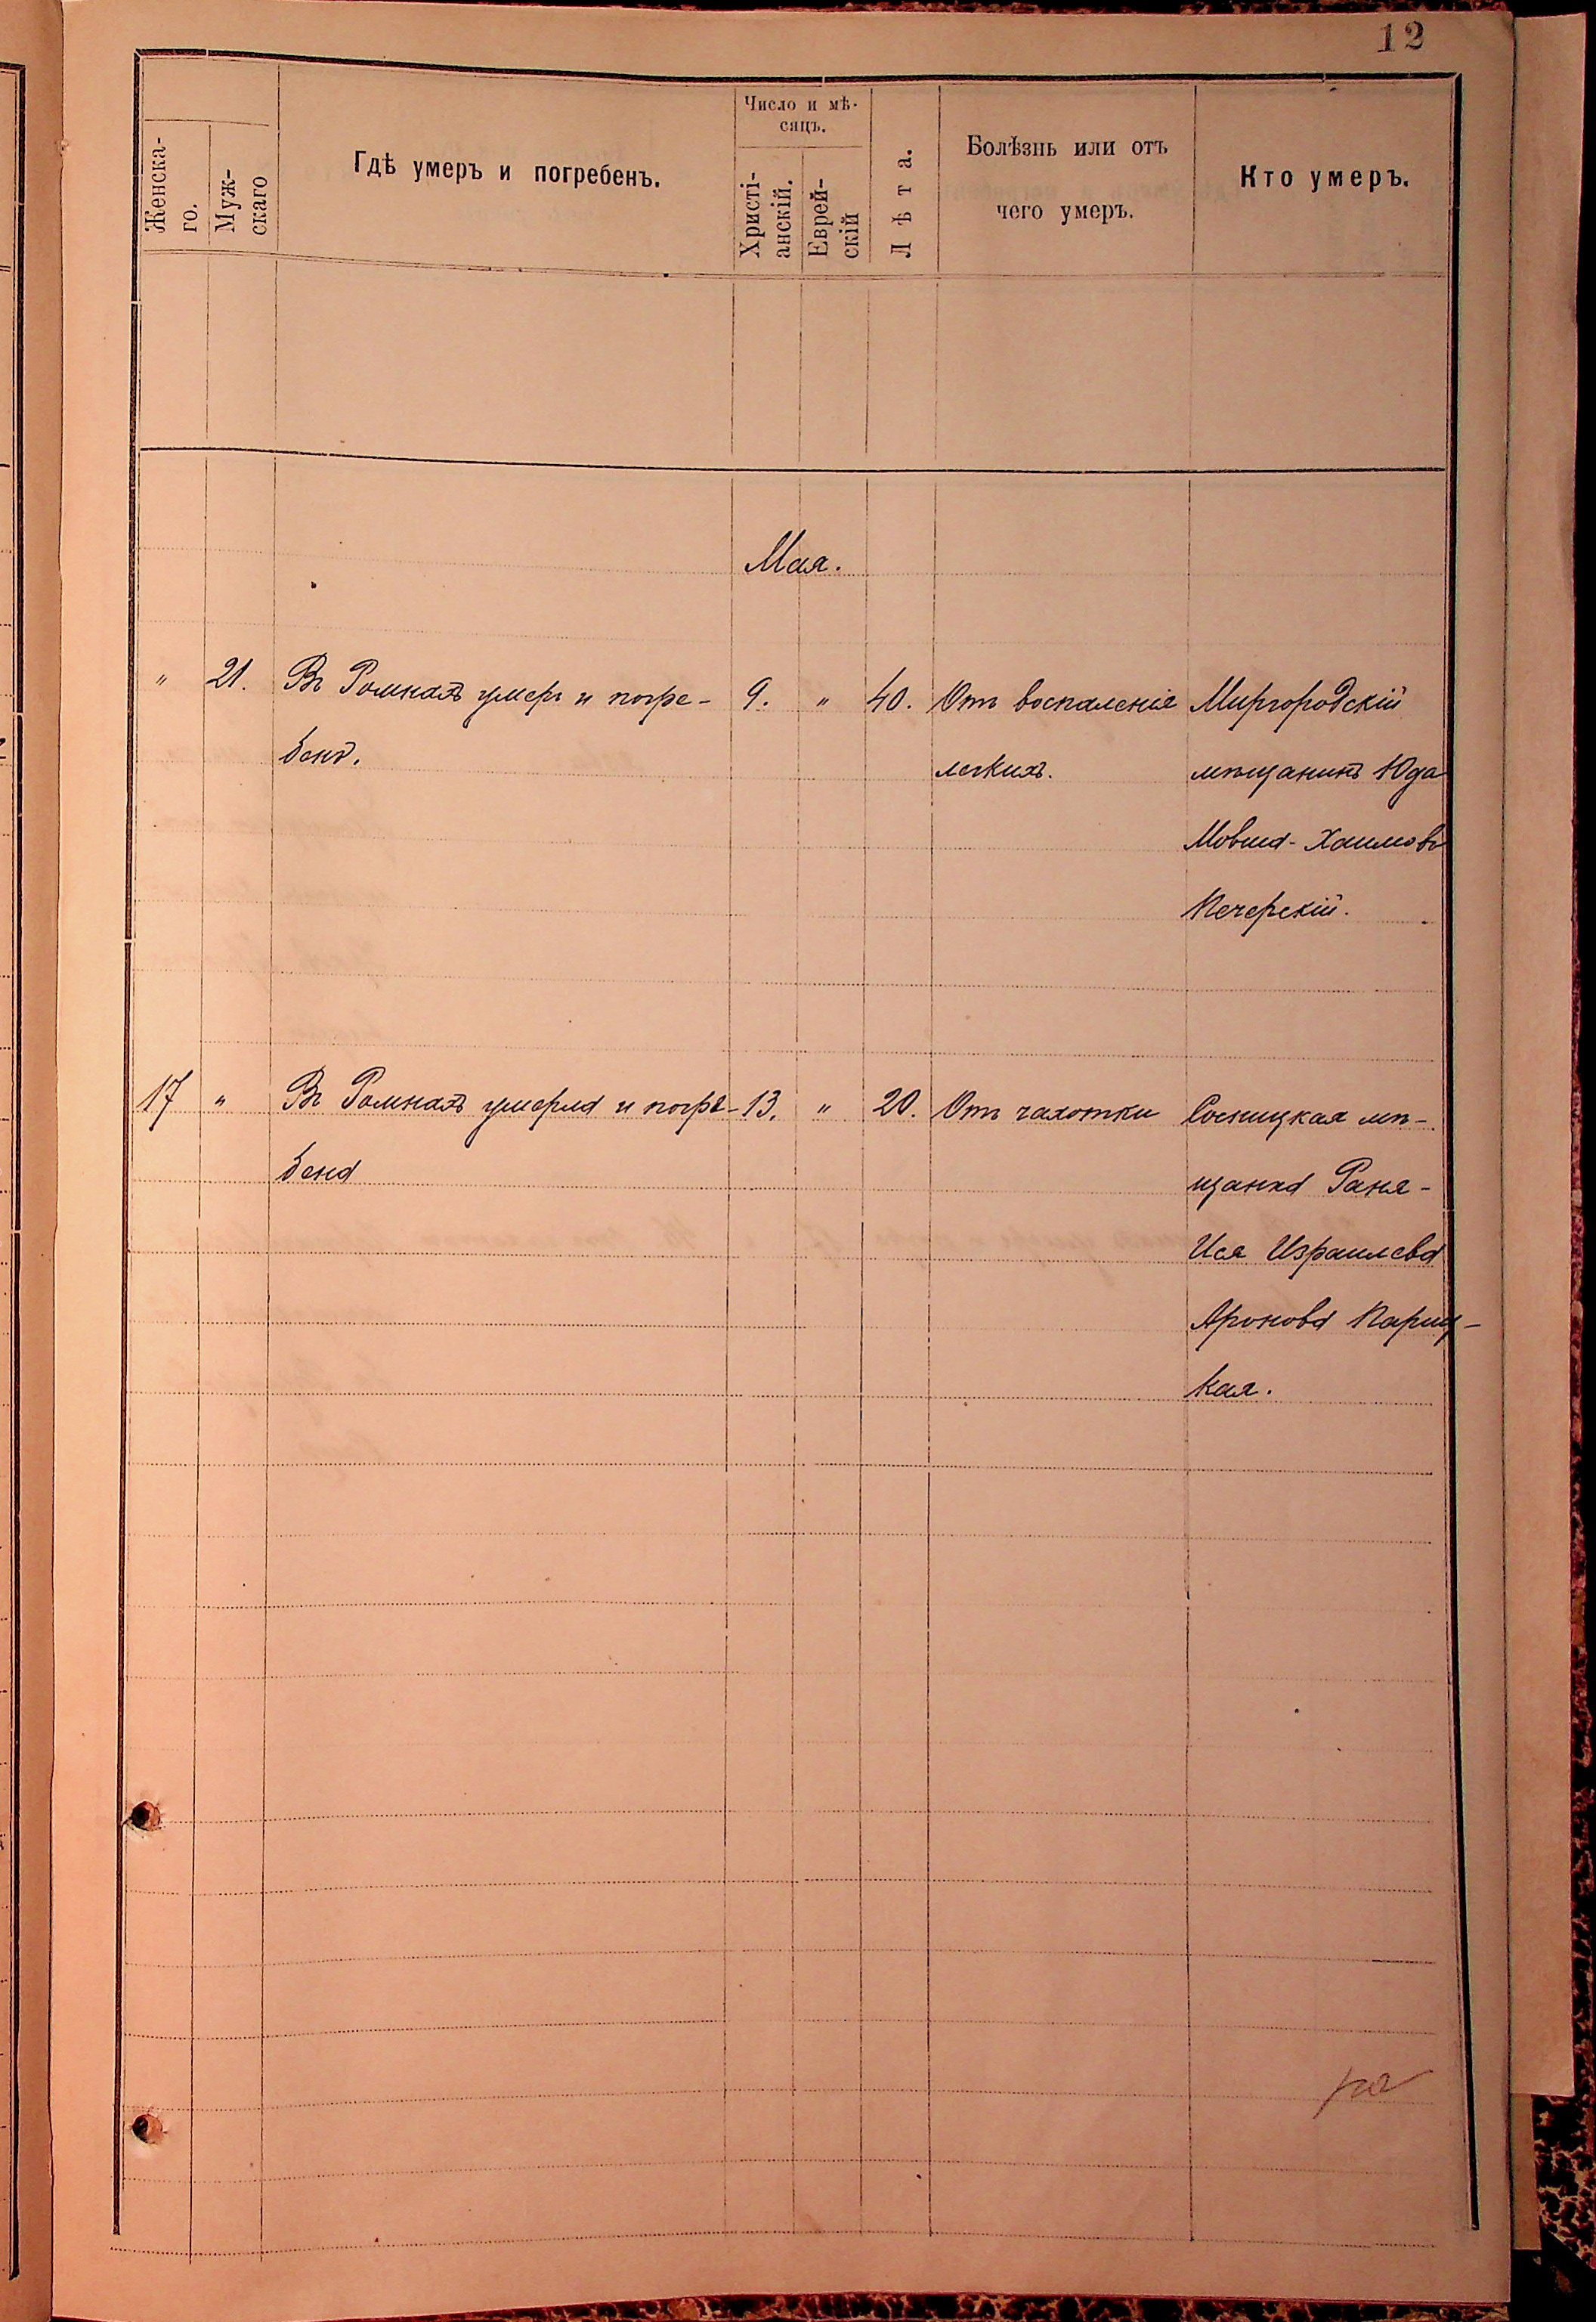 12
Женска-
го.
Муж-
скаго
Гдѣ умеръ и погребенъ.
Число и мѣ-
сяцъ.
Христі-
анскій.
Еврей-
скій
Лѣта.
Болѣзнь или отъ
чего умеръ.
Кто умеръ.
Мая.
" 21. Въ Ромнахъ умеръ и погре- 9. " 40. Отъ воспаленія Миргородскій
бенъ. легкихъ. мѣщанинъ Юда
Мовша-Хаимовъ
Печерскій.
17 " Въ Ромнахъ умерла и погре- 13. " 20. Отъ чахотки Сосницкая мѣ-
бена щанка Раня-
Ися Израилева
Аронова Париц-
кая.